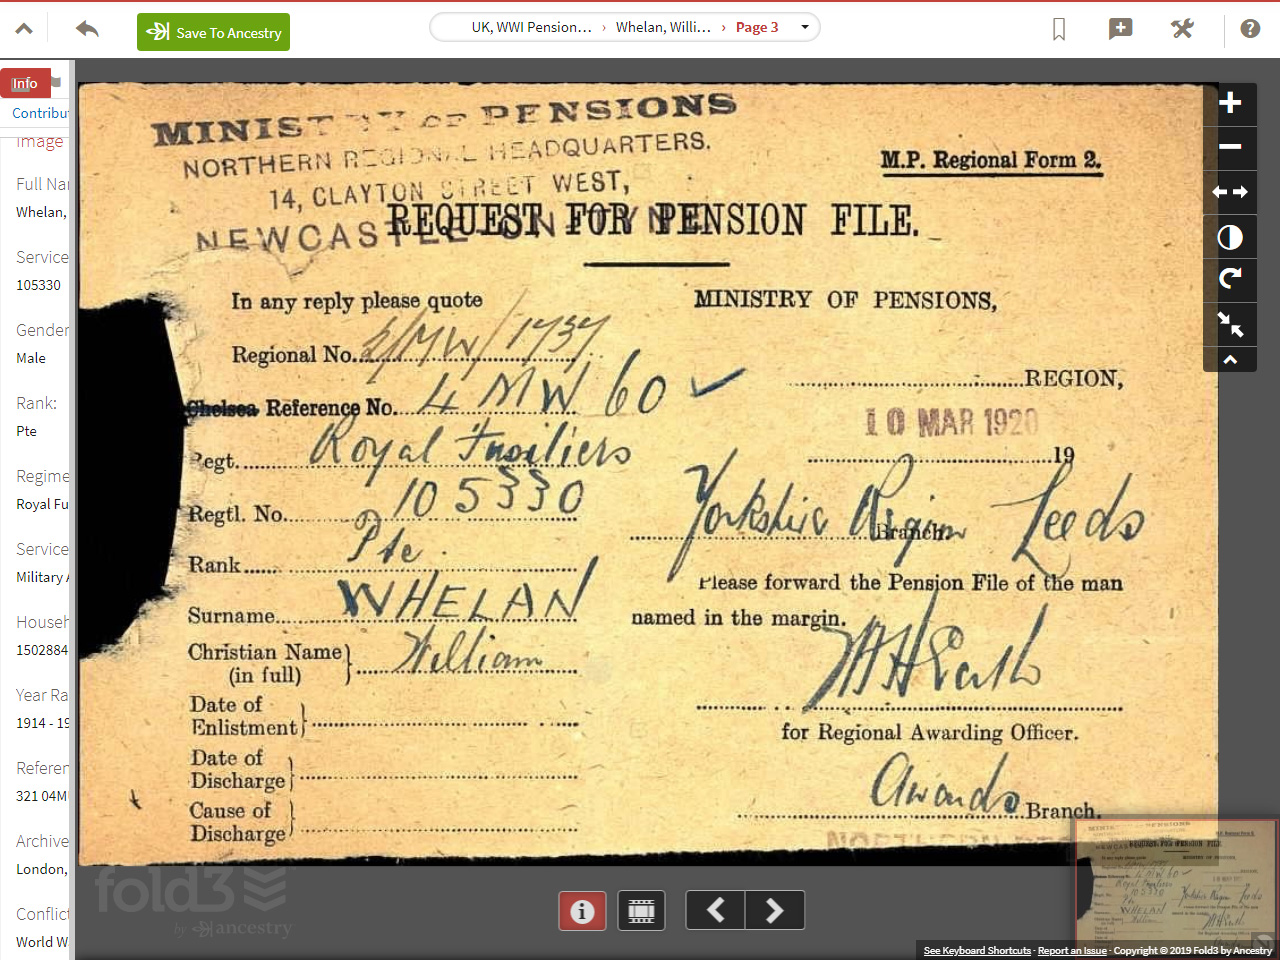 Save To Ancestry
UK, WWI Pension... › Whelan, Willi... › Page 3
Info
Contribut
Image
Full Nar
Whelan,
Service
105330
Gender
Male
Rank:
Pte
Regime
Royal Fu
Service
Military A
Househ
1502884
Year Ra
1914 - 19
Referen
321 04M
Archive
London,
Conflict
World W
MINISTRY OF PENSIONS
NORTHERN REGIONAL HEADQUARTERS.
14, CLAYTON STREET WEST,
NEWCASTLE ON TYNE
M.P. Regional Form 2.
REQUEST FOR PENSION FILE.
In any reply please quote
Regional No. 2/MW/1737
Chelsea Reference No. 4 MW 60 ✓
Regt. Royal Fusiliers
Regtl. No. 105330
Rank Pte.
Surname WHELAN
Christian Name (in full) William
Date of Enlistment
Date of Discharge
Cause of Discharge
MINISTRY OF PENSIONS,
REGION,
10 MAR 1920
19
Yorkshire Region Leeds
Branch.
Please forward the Pension File of the man
named in the margin.
for Regional Awarding Officer.
Awards Branch.
NORTHERN
fold3
by ancestry
See Keyboard Shortcuts · Report an Issue · Copyright © 2019 Fold3 by Ancestry